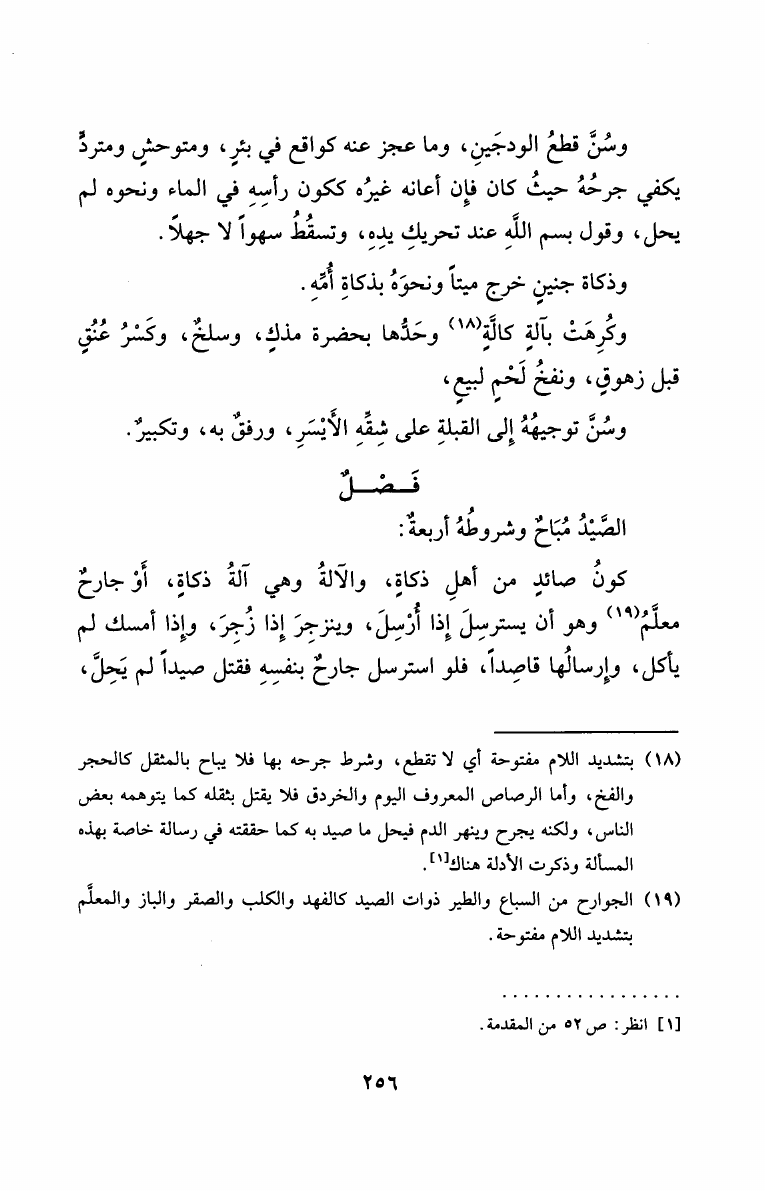 وسُنَّ قطعُ الودجَينِ، وما عجز عنه كواقع في بئرٍ، ومتوحشٍ ومتردٍّ
يكفي جرحُهُ حيثُ كان فإن أعانه غيرُه ككون رأسِهِ في الماء ونحوه لم
يحل، وقول بسم اللَّهِ عند تحريكِ يدِهِ، وتسقُطُ سهواً لا جهلاً.
وذكاة جنينٍ خرج ميتاً ونحوَهُ بذكاةِ أُمِّهِ.
وكُرِهَتْ بآلةٍ كالَّةٍ(١٨) وحَدُّها بحضرة مذكٍ، وسلخٌ، وكَسْرُ عُنُقٍ
قبل زهوقٍ، ونفخُ لَحْمٍ لبيعٍ،
وسُنَّ توجيهُهُ إلى القبلةِ على شِقِّهِ الأَيْسَرِ، ورفقٌ به، وتكبيرٌ.
فَـصْـلٌ
الصَّيْدُ مُبَاحٌ وشروطُهُ أربعةٌ:
كونُ صائدٍ من أهلِ ذكاةٍ، والآلةُ وهي آلةُ ذكاةٍ، أَوْ جارحٌ
معلَّمٌ(١٩) وهو أن يسترسِلَ إذا أُرْسِلَ، وينزجِرَ إذا زُجِرَ، وإذا أمسك لم
يأكل، وإرسالُها قاصِداً، فلو استرسل جارحٌ بنفسِهِ فقتل صيداً لم يَحِلَّ،
(١٨) بتشديد اللام مفتوحة أي لا تقطع، وشرط جرحه بها فلا يباح بالمثقل كالحجر
والفخ، وأما الرصاص المعروف اليوم والخردق فلا يقتل بثقله كما يتوهمه بعض
الناس، ولكنه يجرح وينهر الدم فيحل ما صيد به كما حققته في رسالة خاصة بهذه
المسألة وذكرت الأدلة هناك[١].
(١٩) الجوارح من السباع والطير ذوات الصيد كالفهد والكلب والصقر والباز والمعلَّم
بتشديد اللام مفتوحة.
[١] انظر: ص ٥٢ من المقدمة.
٢٥٦